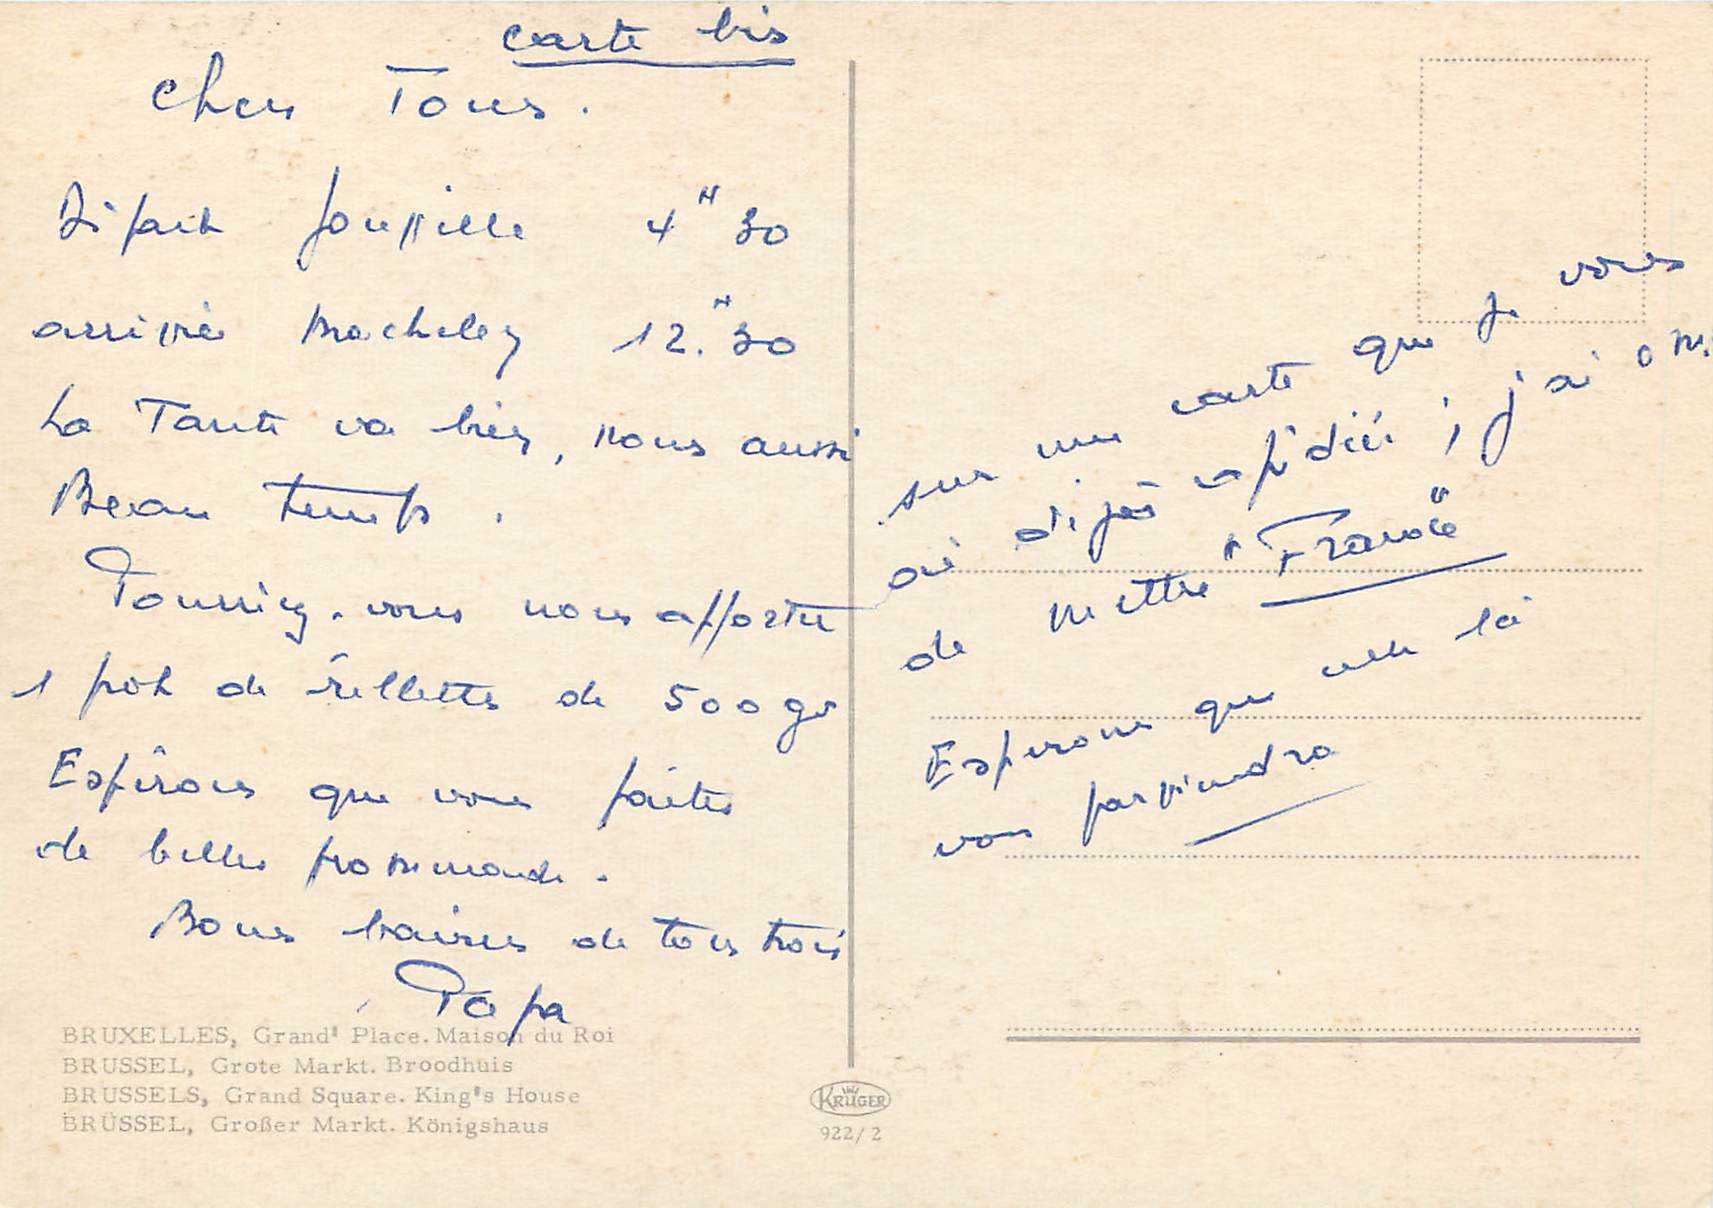 carte bis
Chers Tous.
Départ Joupille 4H30
arrivée 12.H30
La Tante va bien, nous aussi
Beau temps.
Pourriez-vous nous apporter
1 pot de rillettes de 500 gr
Espérons que vous faites
de belles promenade.
Bons baisers de tous trois
Papa
sur une carte que je vous
ai déjà expédiée, j'ai omi
de mettre "France"
Espérons que celle là
vous parviendra
BRUXELLES, Grand' Place. Maison du Roi
BRUSSEL, Grote Markt. Broodhuis
BRUSSELS, Grand Square. King's House
BRÜSSEL, Großer Markt. Königshaus
KRÜGER
922/2